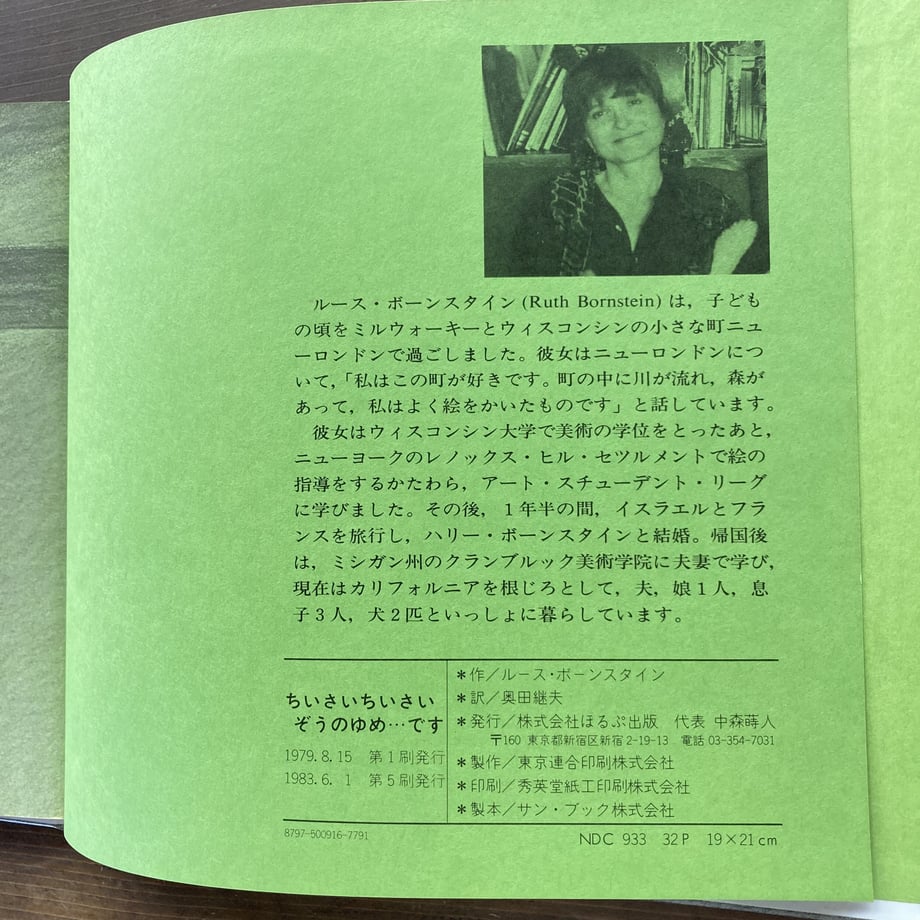 ルース・ボーンスタイン(Ruth Bornstein)は，子ども
の頃をミルウォーキーとウィスコンシンの小さな町ニュ
ーロンドンで過ごしました。彼女はニューロンドンにつ
いて，「私はこの町が好きです。町の中に川が流れ，森が
あって，私はよく絵をかいたものです」と話しています。
彼女はウィスコンシン大学で美術の学位をとったあと，
ニューヨークのレノックス・ヒル・セツルメントで絵の
指導をするかたわら，アート・スチューデント・リーグ
に学びました。その後，1年半の間，イスラエルとフラ
ンスを旅行し，ハリー・ボーンスタインと結婚。帰国後
は，ミシガン州のクランブルック美術学院に夫妻で学び，
現在はカリフォルニアを根じろとして，夫，娘1人，息
子3人，犬2匹といっしょに暮らしています。
ちいさいちいさい
ぞうのゆめ…です
1979.8.15 第1刷発行
1983.6. 1 第5刷発行
＊作／ルース・ボーンスタイン
＊訳／奥田継夫
＊発行／株式会社ほるぷ出版 代表 中森蒔人
〒160 東京都新宿区新宿2-19-13 電話 03-354-7031
＊製作／東京連合印刷株式会社
＊印刷／秀英堂紙工印刷株式会社
＊製本／サン・ブック株式会社
8797-500916-7791
NDC 933 32P 19×21cm